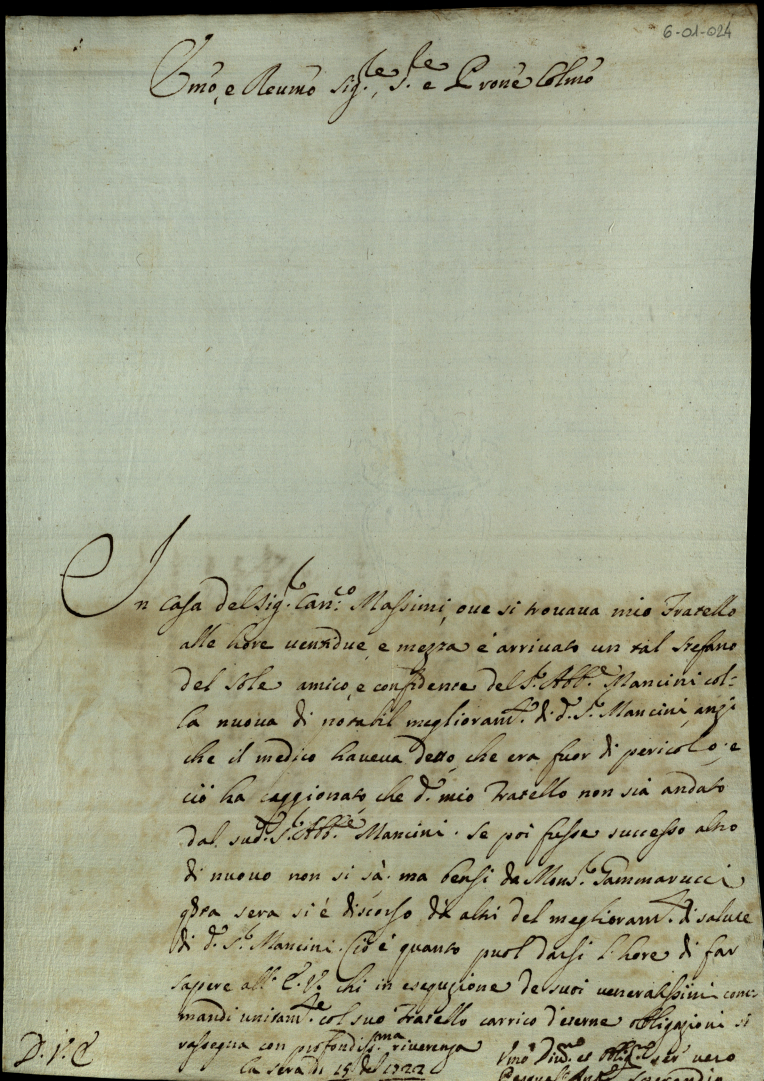 6-01-024
Emo, e Reumo Sig.re, S.re e Prone Colmo
In casa del Sig.r Can.co Massimi, oue si trouaua mio Fratello
alle hore uentidue, e mezza é arriuato un tal Stefano
del Sole amico, e confidente del S.r Abb.e Mancini col=
la nuoua di notabil miglioram.to di d.o S.r Mancini, anzi
che il medico haueua detto, che era fuor di pericolo; e
ciò ha caggionato che d.o mio Fratello non sia andato
dal sud.o S.r Abb.e Mancini. Se poi fusse successo altro
di nuouo non si sà. ma bensi da Mons.r Gammarucci
qsta sera si é discorso da altri del miglioram.to di salute
di d.o S.r Mancini. Ciò é quanto puol darsi l'hore di far
sapere all' E. V. chi in esequzione de suoi ueneratissimi com=
mandi unitam.te col suo Fratello carrico d'eterne obbligazioni si
rassegna con profondiss.ma riuerenza
D. V. E
la sera di 15 del 1722
Vmo Diu.mo et Obblig.mo ser uero